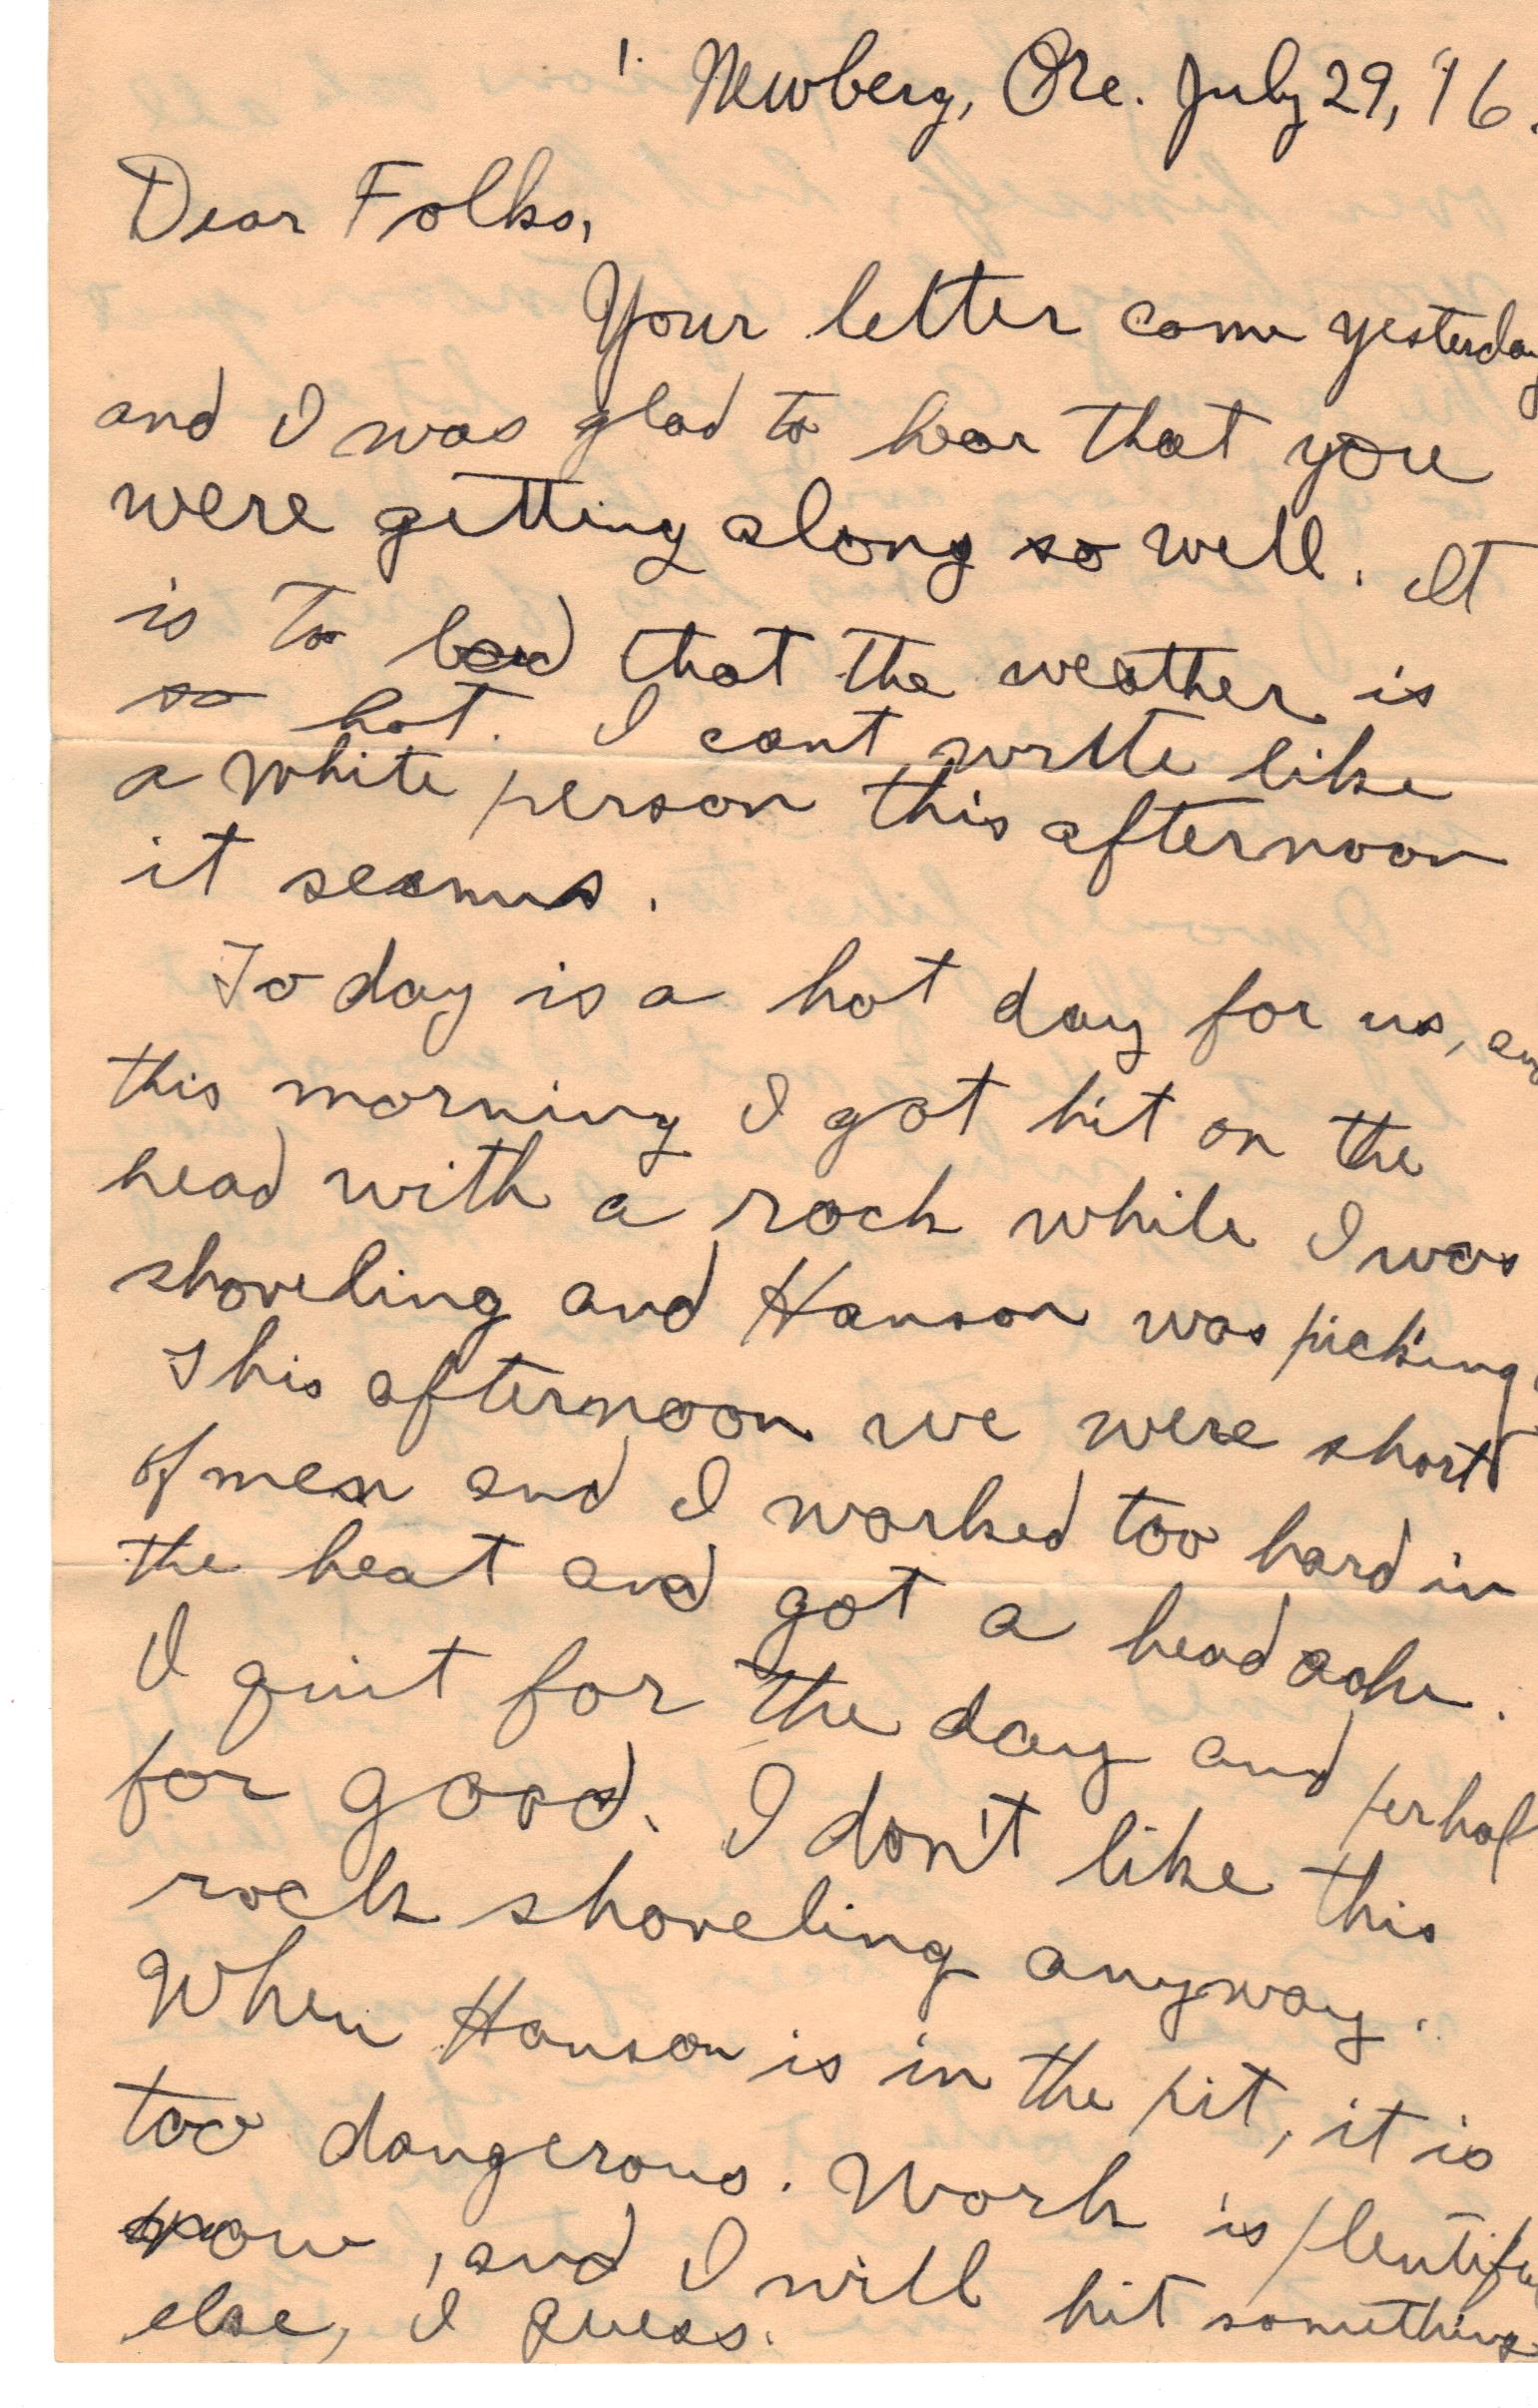 1. Newberg, Ore. July 29, '16.
Dear Folks,
Your letter came yesterday
and I was glad to hear that you
were getting along so well. It
is to bad that the weather is
so hot. I cant write like
a white person this afternoon
it seems.
To day is a hot day for us, and
this morning I got hit on the
head with a rock while I was
shoveling and Hanson was picking.
This afternoon we were short
of men and I worked too hard in
the heat and got a head ache.
I quit for the day and perhap
for good. I don't like this
rock shoveling anyway.
When Hanson is in the pit, it is
too dangerous. Work is plentiful
now, and I will hit something
else, I guess.